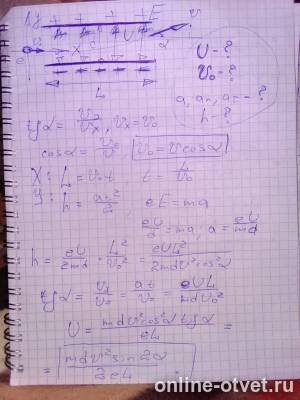 E
U
v
α
e
X
L
U - ?
v₀ = ?
a, aₙ, aτ - ?
h - ?
tg α = vy/vx, vx = v₀
cos α = v₀/v  v₀ = v cos α
X: L = v₀t, t = L/v₀
Y: h = at²/2  eE = ma
eU/d = ma; a = eU/md
h = eU/2md · L²/v₀² = eUL²/2mdv²cos²α
tg α = vy/v₀ = at/v₀ = eUL/mdv₀²
U = mdv²cos²α tg α/eL =
= mdv² sin 2α/2eL
online-otvet.ru